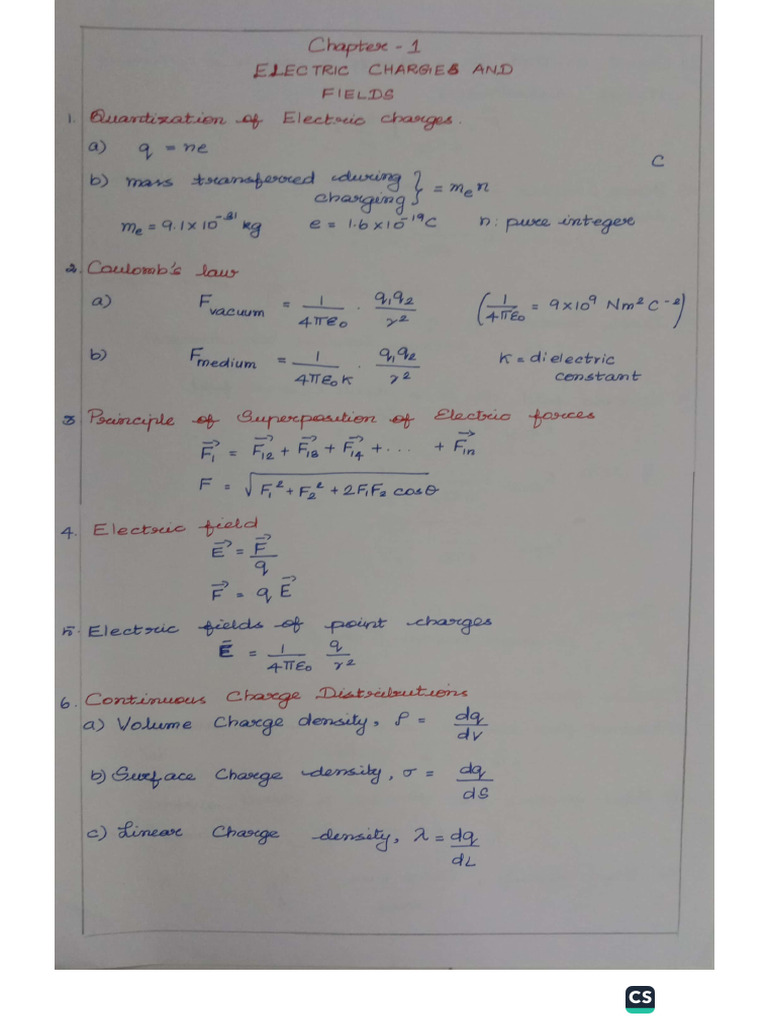 Chapter - 1
ELECTRIC CHARGES AND
FIELDS
1. Quantization of Electric charges.
a) q = ne
C
b) mass transferred during charging } = mₑn
mₑ = 9.1×10⁻³¹ kg e = 1.6×10⁻¹⁹C n: pure integer
2. Coulomb's law
a) F vacuum = 1/4πε₀ · q₁q₂/r² (1/4πε₀ = 9×10⁹ Nm²C⁻²)
b) Fmedium = 1/4πε₀K · q₁q₂/r² K = dielectric constant
3 Principle of Superposition of Electric forces
F₁→ = F₁₂→ + F₁₃→ + F₁₄→ + ... + F₁ₙ→
F = √(F₁² + F₂² + 2F₁F₂ cosθ)
4. Electric field
E→ = F→/q
F→ = q E→
5. Electric fields of point charges
E̅ = 1/4πε₀ q/r²
6. Continuous Charge Distributions
a) Volume Charge density, ρ = dq/dV
b) Surface Charge density, σ = dq/dS
c) Linear Charge density, λ = dq/dL
CS